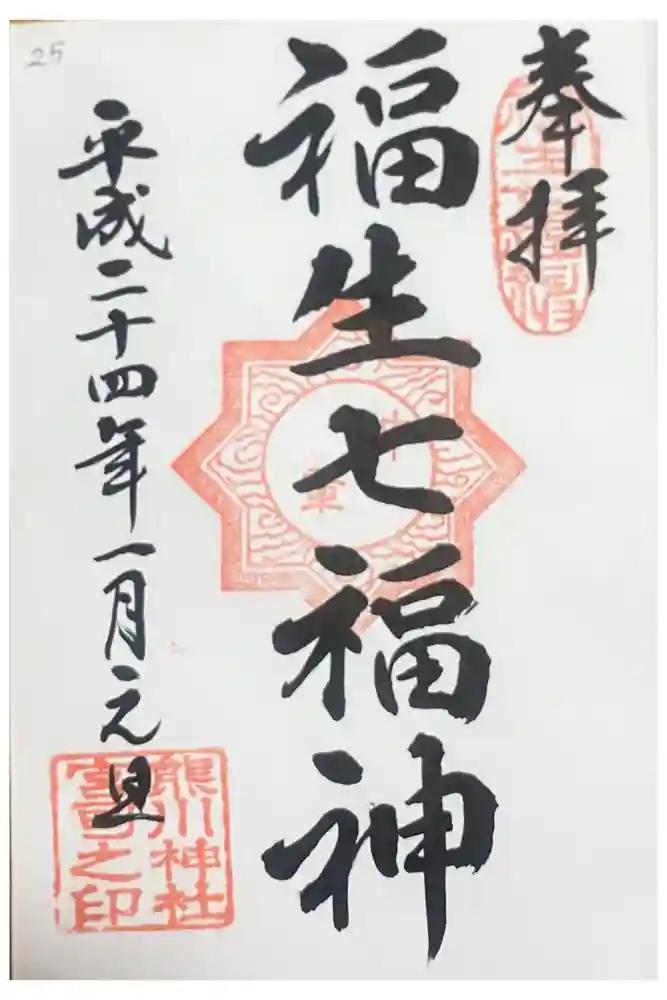 奉拝
福生七福神
平成二十四年一月元旦
熊川神社
宮司之印
25